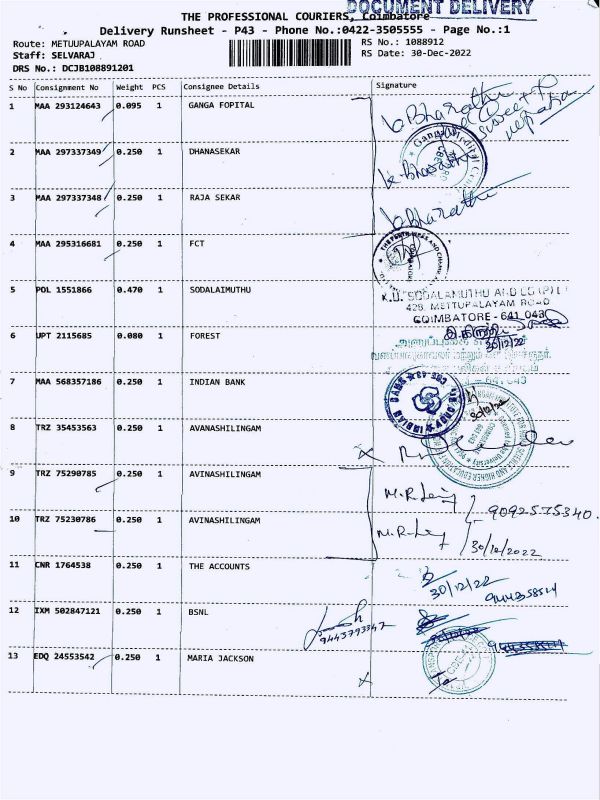 DOCUMENT DELIVERY
THE PROFESSIONAL COURIERS, Coimbatore
Delivery Runsheet - P43 - Phone No.:0422-3505555 - Page No.:1
Route: METUUPALAYAM ROAD
RS No.: 1088912
Staff: SELVARAJ
RS Date: 30-Dec-2022
DRS No.: DCJB108891201
S No Consignment No Weight PCS Consignee Details Signature
1 MAA 293124643 0.095 1 GANGA FOPITAL
2 MAA 297337349 0.250 1 DHANASEKAR
3 MAA 297337348 0.250 1 RAJA SEKAR
4 MAA 295316681 0.250 1 FCT
5 POL 1551866 0.470 1 SODALAIMUTHU
K.U. SODALAMUTHU AND CO (P) LTD
428, METTUPALAYAM ROAD
COIMBATORE - 641 043
6 UPT 2115685 0.080 1 FOREST
30/12/22
7 MAA 568357186 0.250 1 INDIAN BANK
INDIAN BANK
8 TRZ 35453563 0.250 1 AVANASHILINGAM
9 TRZ 75290785 0.250 1 AVINASHILINGAM
9092575340.
10 TRZ 75230786 0.250 1 AVINASHILINGAM
30/12/2022
11 CNR 1764538 0.250 1 THE ACCOUNTS
30/12/22
12 IXM 502847121 0.250 1 BSNL
9443793347
13 EDQ 24553542 0.250 1 MARIA JACKSON